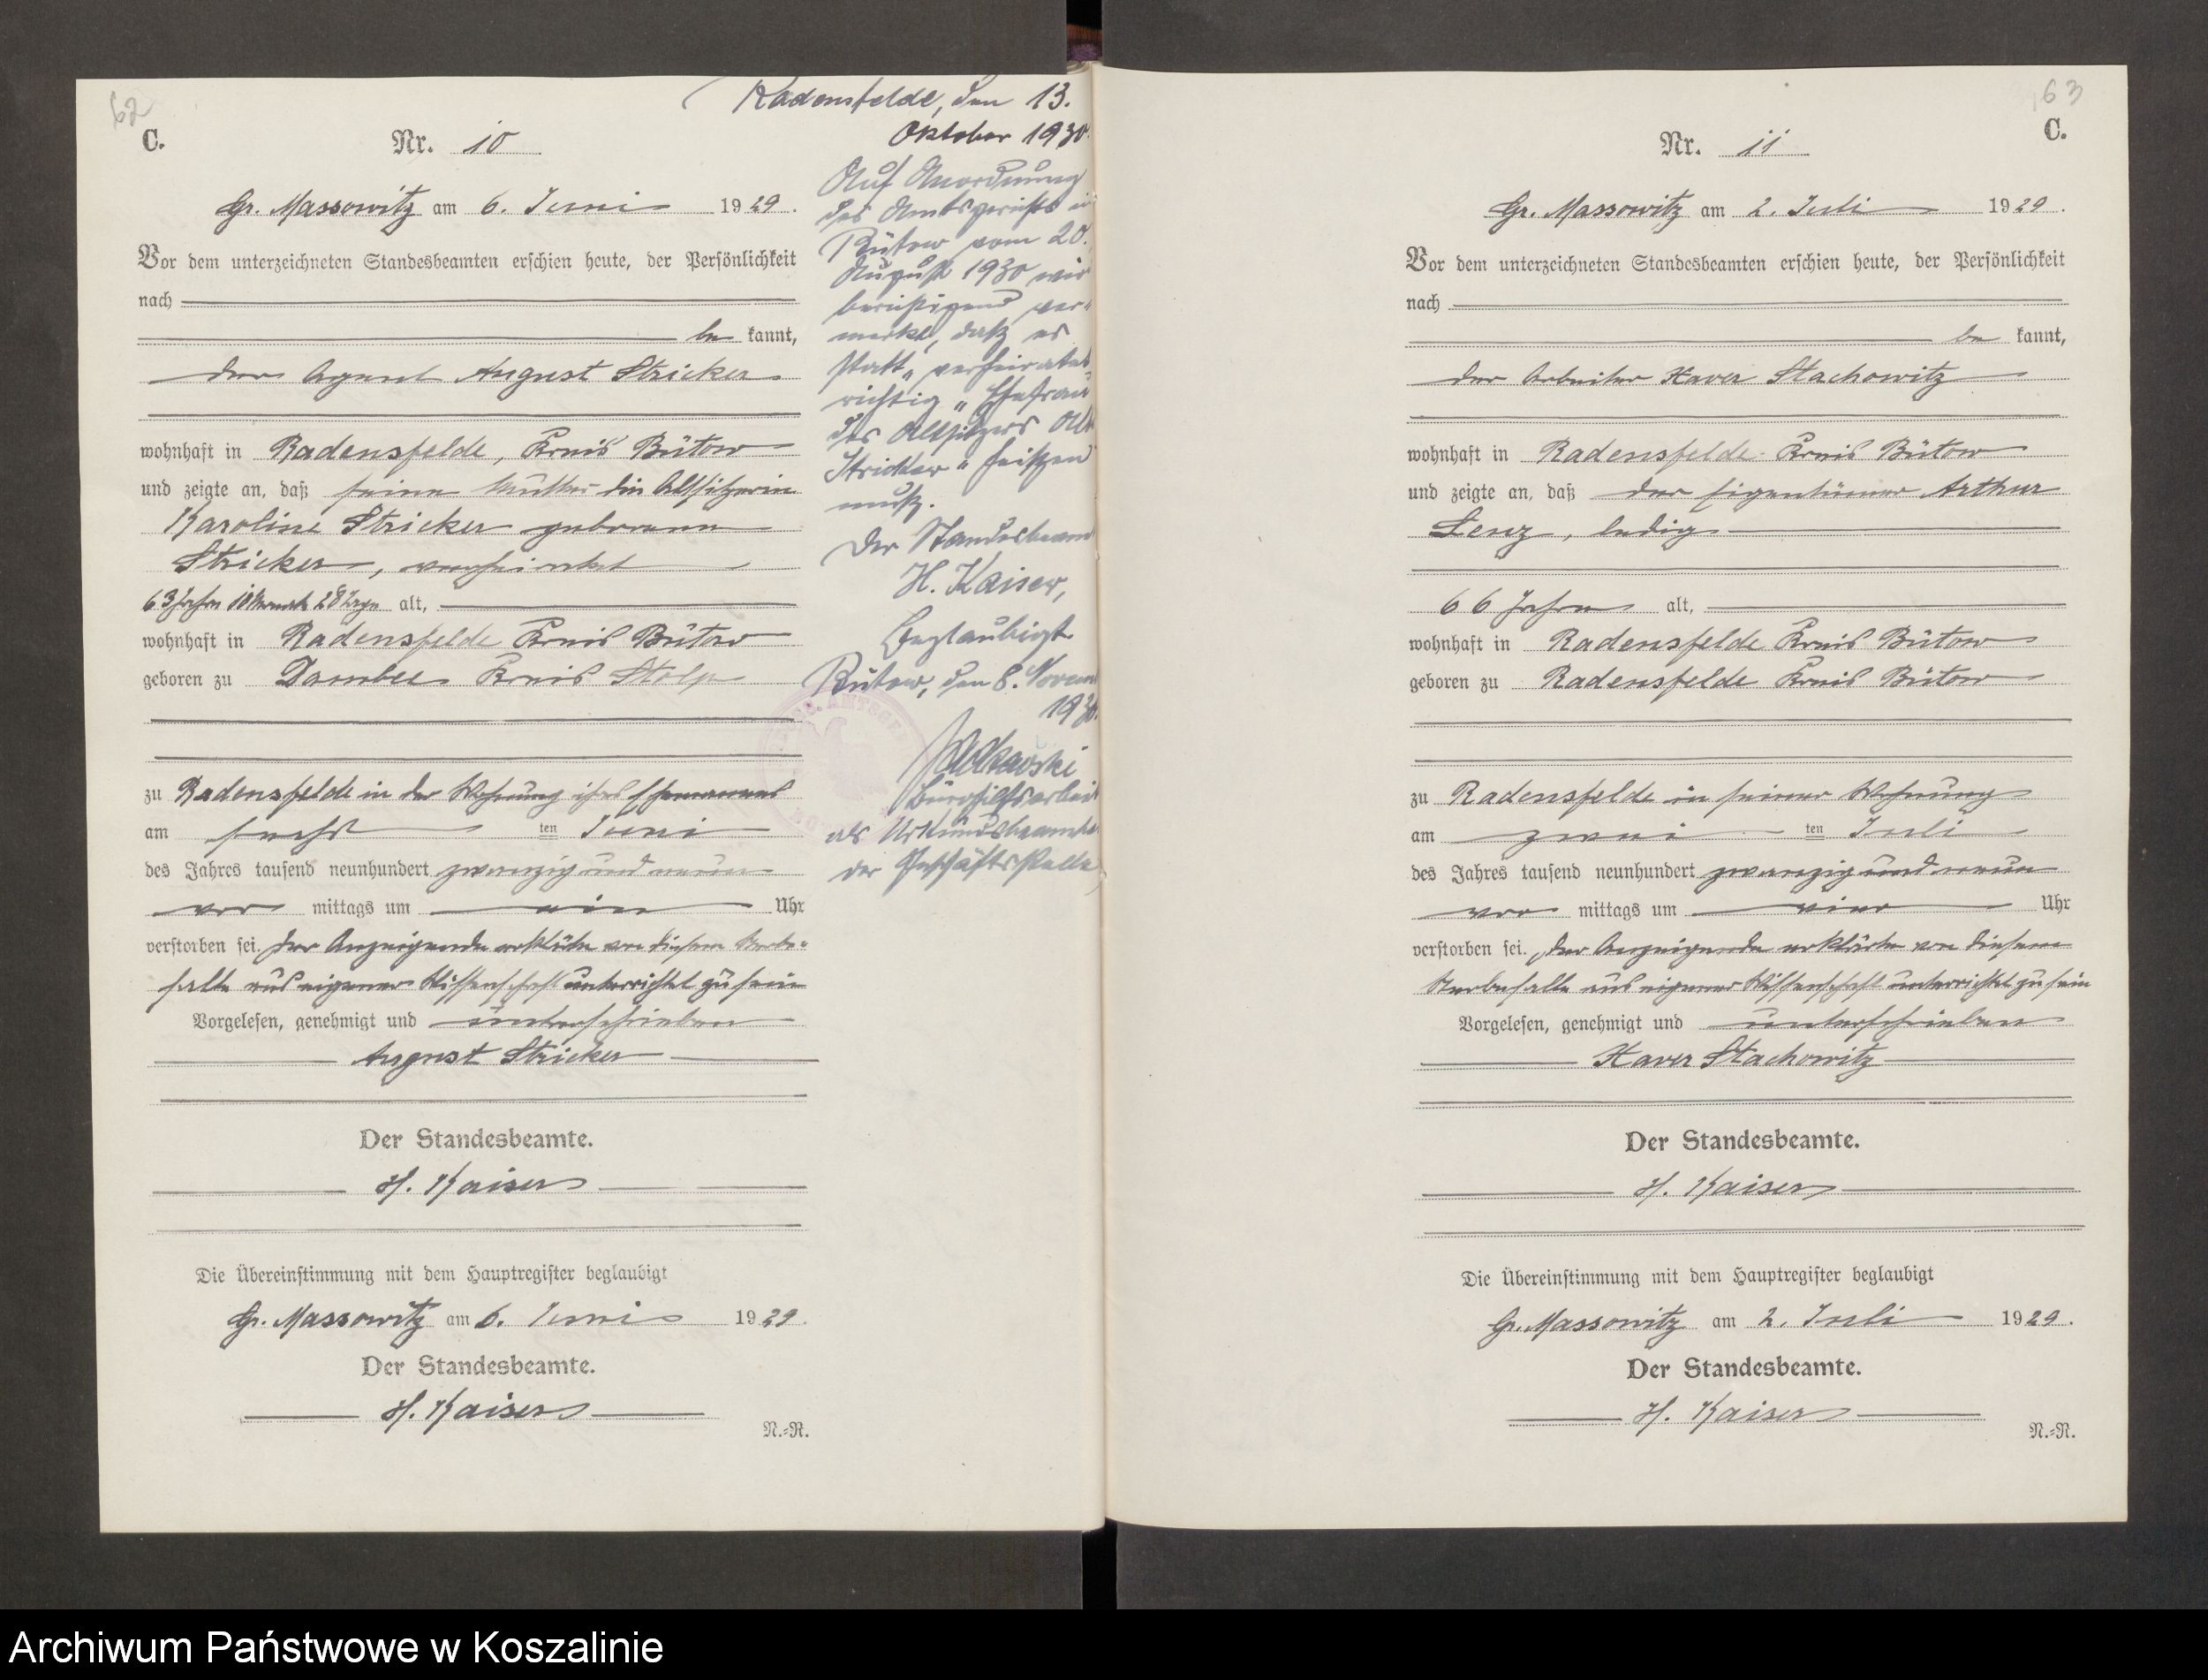 62
C.
Nr. 10
Gr. Massowitz am 6. Juni 1929.
Vor dem unterzeichneten Standesbeamten erschien heute, der Persönlichkeit
nach
be kannt,
der Agent August Stricker
wohnhaft in Radensfelde, Kreis Bütow
und zeigte an, daß seine Mutter die Altsitzerin
Karoline Stricker geborene
Stricker, verheiratet
63 Jahre 10 Monate 28 Tage alt,
wohnhaft in Radensfelde Kreis Bütow
geboren zu Dambee Kreis Stolp
zu Radensfelde in der Wohnung ihres Ehemannes
am sechs ten Juni
des Jahres tausend neunhundert zwanzig und neun
vor mittags um ein Uhr
verstorben sei. Der Anzeigende erklärte von diesem Sterbe-
falle aus eigener Wissenschaft unterrichtet zu sein
Vorgelesen, genehmigt und unterschrieben
August Stricker
Der Standesbeamte.
H. Kaiser
Die Übereinstimmung mit dem Hauptregister beglaubigt
Gr. Massowitz am 6. Juni 1929.
Der Standesbeamte.
H. Kaiser
N.=R.
Radensfelde, den 13.
Oktober 1930.
Auf Anordnung
des Amtsgerichts in
Bütow vom 20.
August 1930 wird
berichtigend ver-
merkt, daß es
statt „verheiratet"
richtig „Ehefrau
des Altsitzers
Stricker" heißen
muß.
Der Standesbeamte
H. Kaiser,
Beglaubigt
Bütow, den 8. Novem
1930.
Bürohilfsarbeit
als Urkundsbeamter
der Geschäftsstelle
63
C.
Nr. 11
Gr. Massowitz am 2. Juli 1929.
Vor dem unterzeichneten Standesbeamten erschien heute, der Persönlichkeit
nach
be kannt,
der Arbeiter Xaver Stachowitz
wohnhaft in Radensfelde Kreis Bütow
und zeigte an, daß der Eigentümer Arthur
Lenz, ledig
66 Jahre alt,
wohnhaft in Radensfelde Kreis Bütow
geboren zu Radensfelde Kreis Bütow
zu Radensfelde in seiner Wohnung
am zwei ten Juli
des Jahres tausend neunhundert zwanzig und neun
vor mittags um vier Uhr
verstorben sei. Der Anzeigende erklärte von diesem
Sterbefalle aus eigener Wissenschaft unterrichtet zu sein
Vorgelesen, genehmigt und unterschrieben
Xaver Stachowitz
Der Standesbeamte.
H. Kaiser
Die Übereinstimmung mit dem Hauptregister beglaubigt
Gr. Massowitz am 2. Juli 1929.
Der Standesbeamte.
H. Kaiser
N.=R.
Archiwum Państwowe w Koszalinie